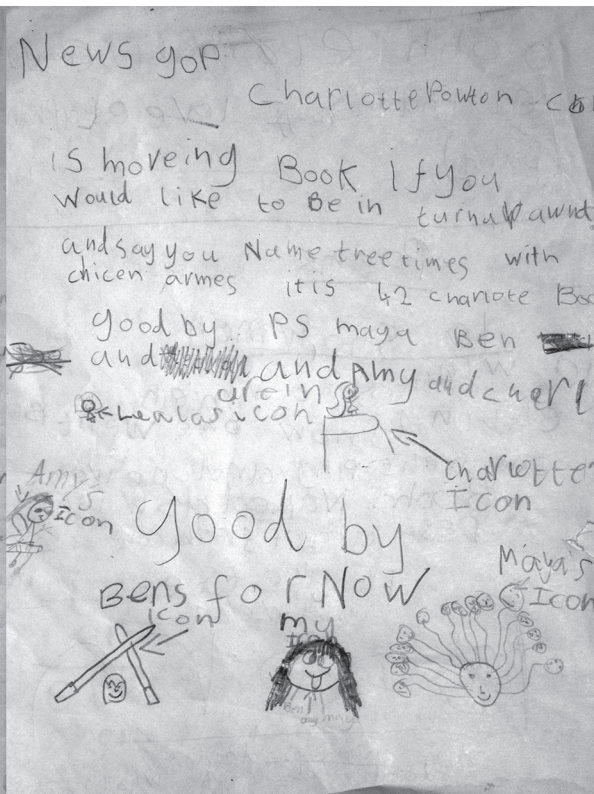 News gop
Charlotte Powton
is moveing Book If you
would like to Be in turn
and say you Name tree times with
chicen armes it is 42 charlote
good by PS maya Ben
and and Amy and
are in
icon
Charlotte
Icon
Amy's
Icon
good by
for Now
Bens
icon
my
Maya's
Icon